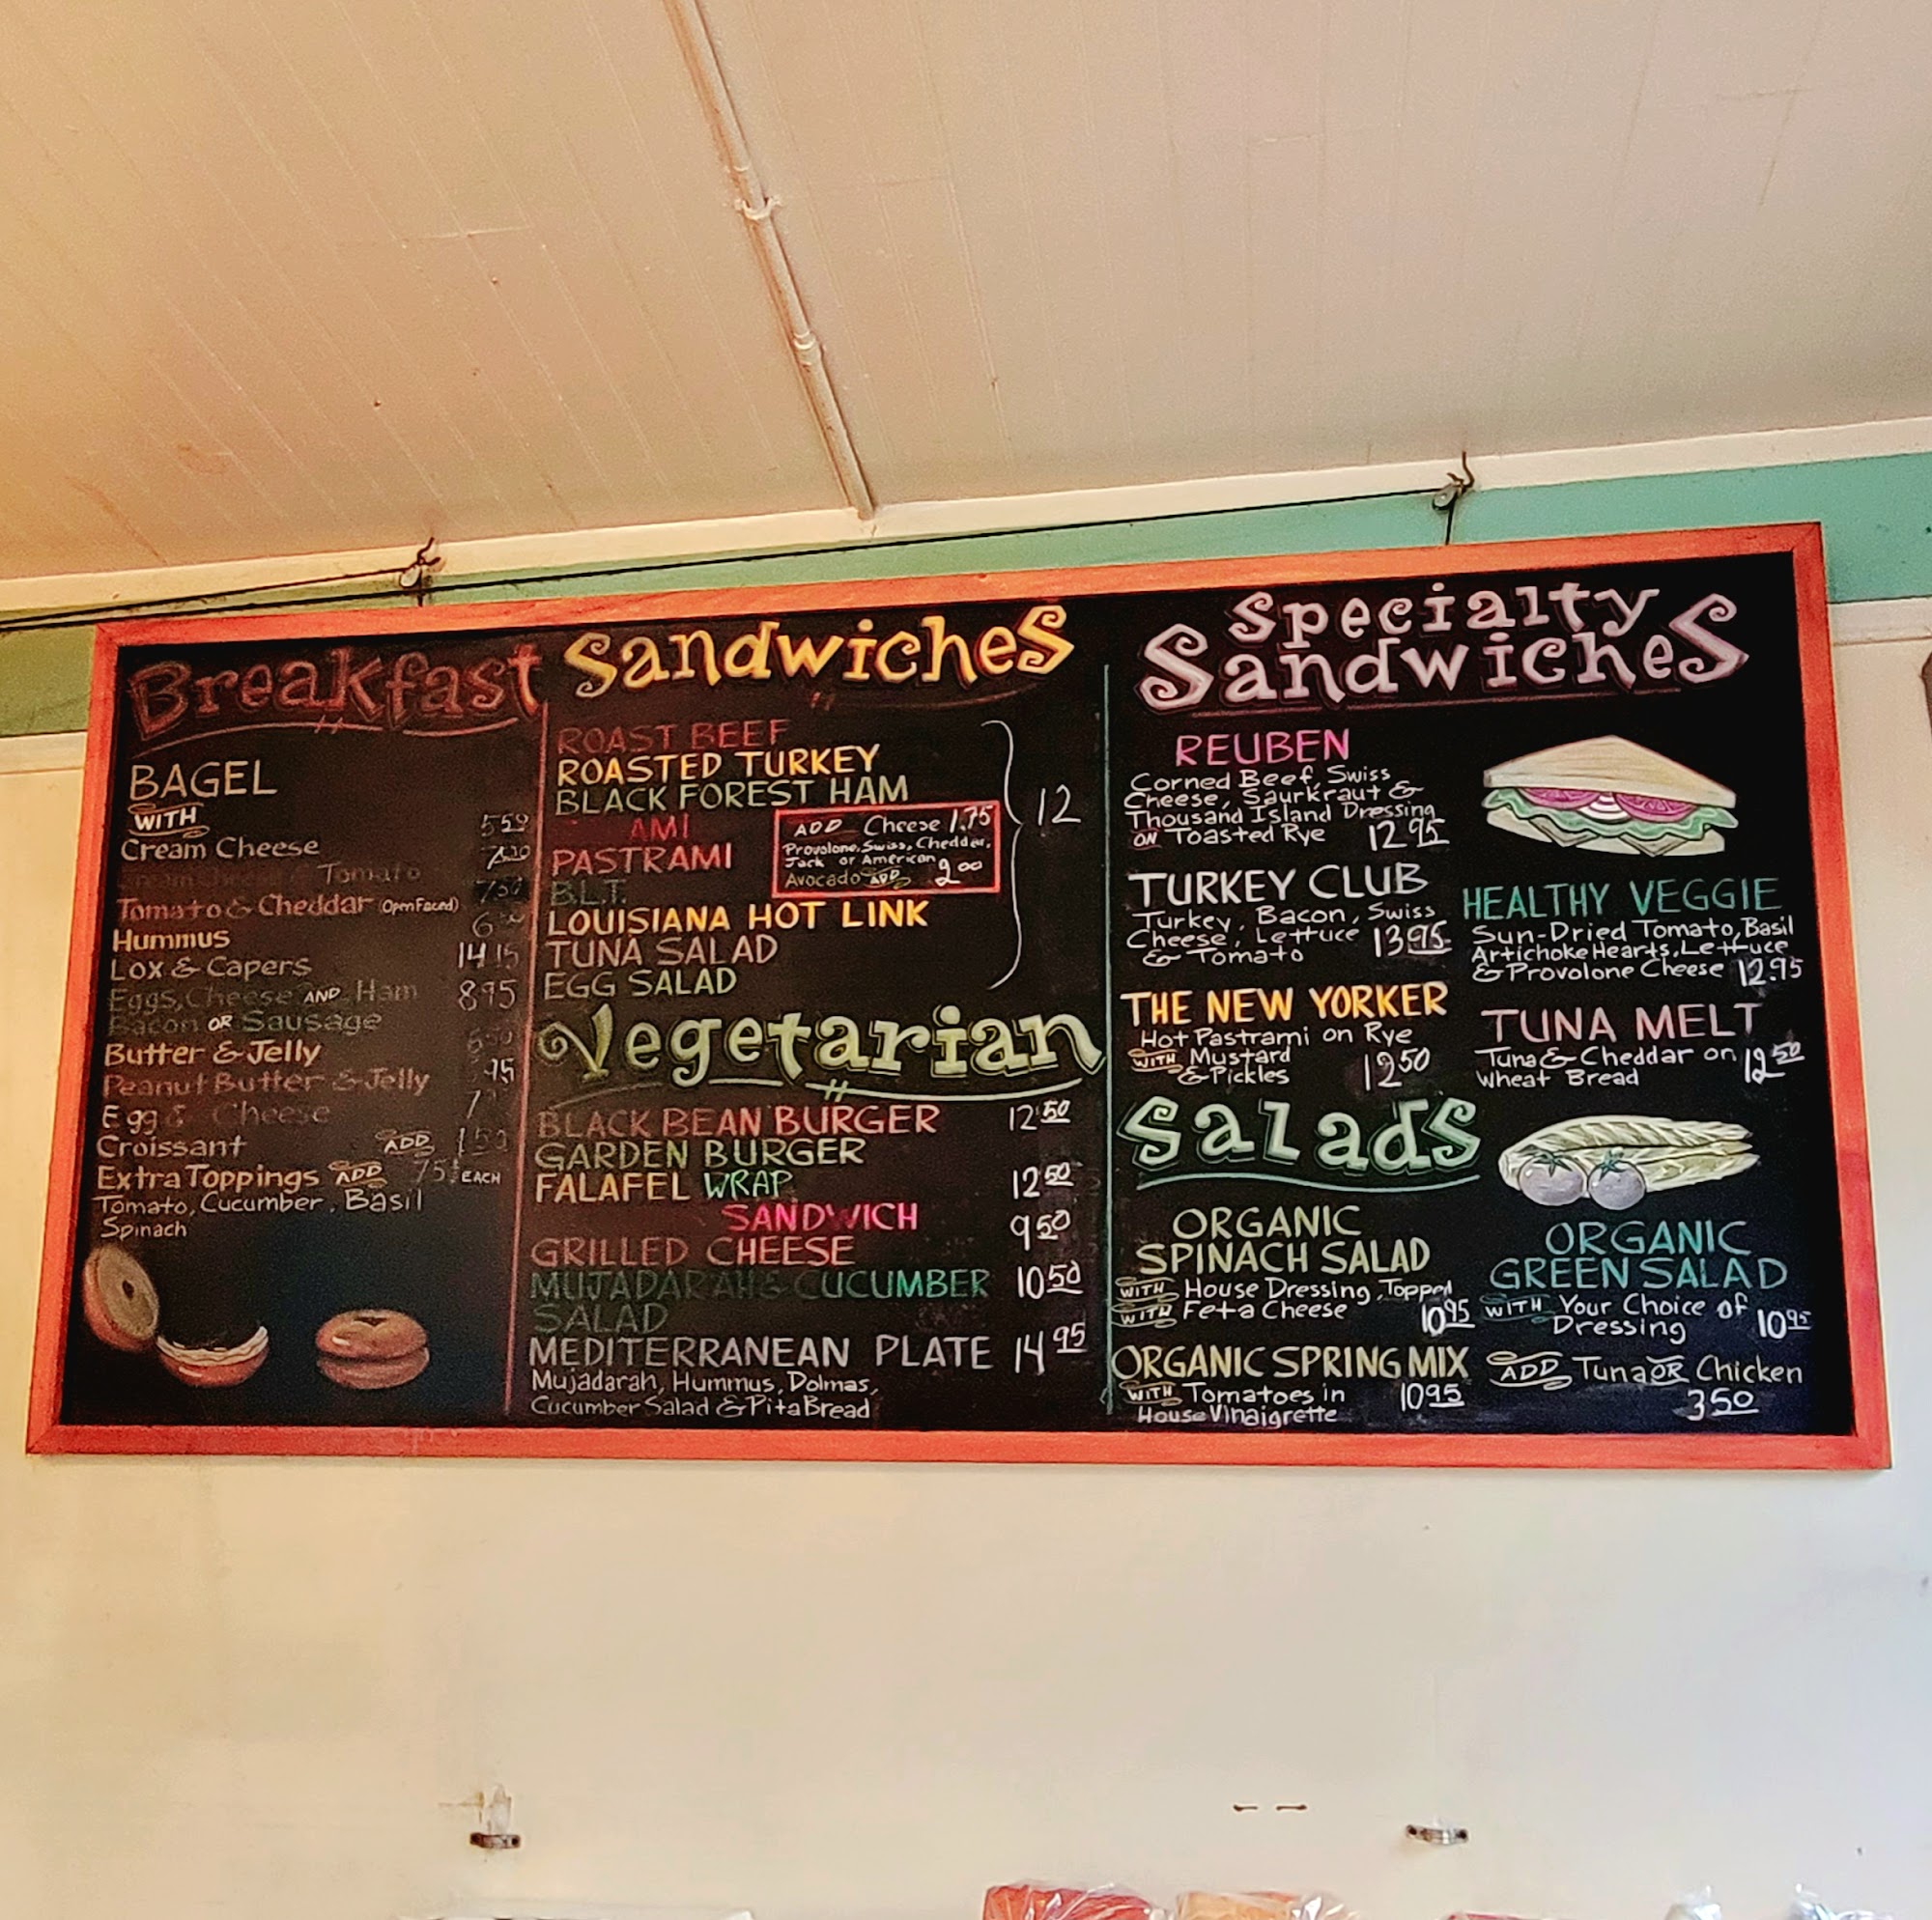 Breakfast
BAGEL
WITH
Cream Cheese 5.50
Tomato
Tomato & Cheddar (Open Faced) 7.50
Hummus
Lox & Capers 14.15
Eggs, Cheese AND Ham 8.95
Bacon OR Sausage
Butter & Jelly
Peanut Butter & Jelly
Egg & Cheese
Croissant ADD 1.50
Extra Toppings ADD .75¢ EACH
Tomato, Cucumber, Basil
Spinach
Sandwiches
ROAST BEEF
ROASTED TURKEY
BLACK FOREST HAM
AMI
PASTRAMI
B.L.T.
LOUISIANA HOT LINK
TUNA SALAD
EGG SALAD
12
ADD Cheese 1.75
Provolone, Swiss, Chedder,
Jack or American
Avocado ADD 2.00
Vegetarian
BLACK BEAN BURGER 12.50
GARDEN BURGER
FALAFEL WRAP 12.50
SANDWICH 9.50
GRILLED CHEESE
MUJADARAH & CUCUMBER 10.50
SALAD
MEDITERRANEAN PLATE 14.95
Mujadarah, Hummus, Dolmas,
Cucumber Salad & Pita Bread
Specialty
Sandwiches
REUBEN
Corned Beef, Swiss
Cheese, Saurkraut &
Thousand Island Dressing
ON Toasted Rye 12.95
TURKEY CLUB
Turkey, Bacon, Swiss
Cheese, Lettuce 13.95
& Tomato
THE NEW YORKER
Hot Pastrami on Rye
WITH Mustard
& Pickles 12.50
HEALTHY VEGGIE
Sun-Dried Tomato, Basil
Artichoke Hearts, Lettuce
& Provolone Cheese 12.95
TUNA MELT
Tuna & Cheddar on 12.50
Wheat Bread
Salads
ORGANIC
SPINACH SALAD
WITH House Dressing, Topped
WITH Feta Cheese 10.95
ORGANIC SPRING MIX
WITH Tomatoes in 10.95
House Vinaigrette
ORGANIC
GREEN SALAD
WITH Your Choice of
Dressing 10.95
ADD Tuna OR Chicken
3.50